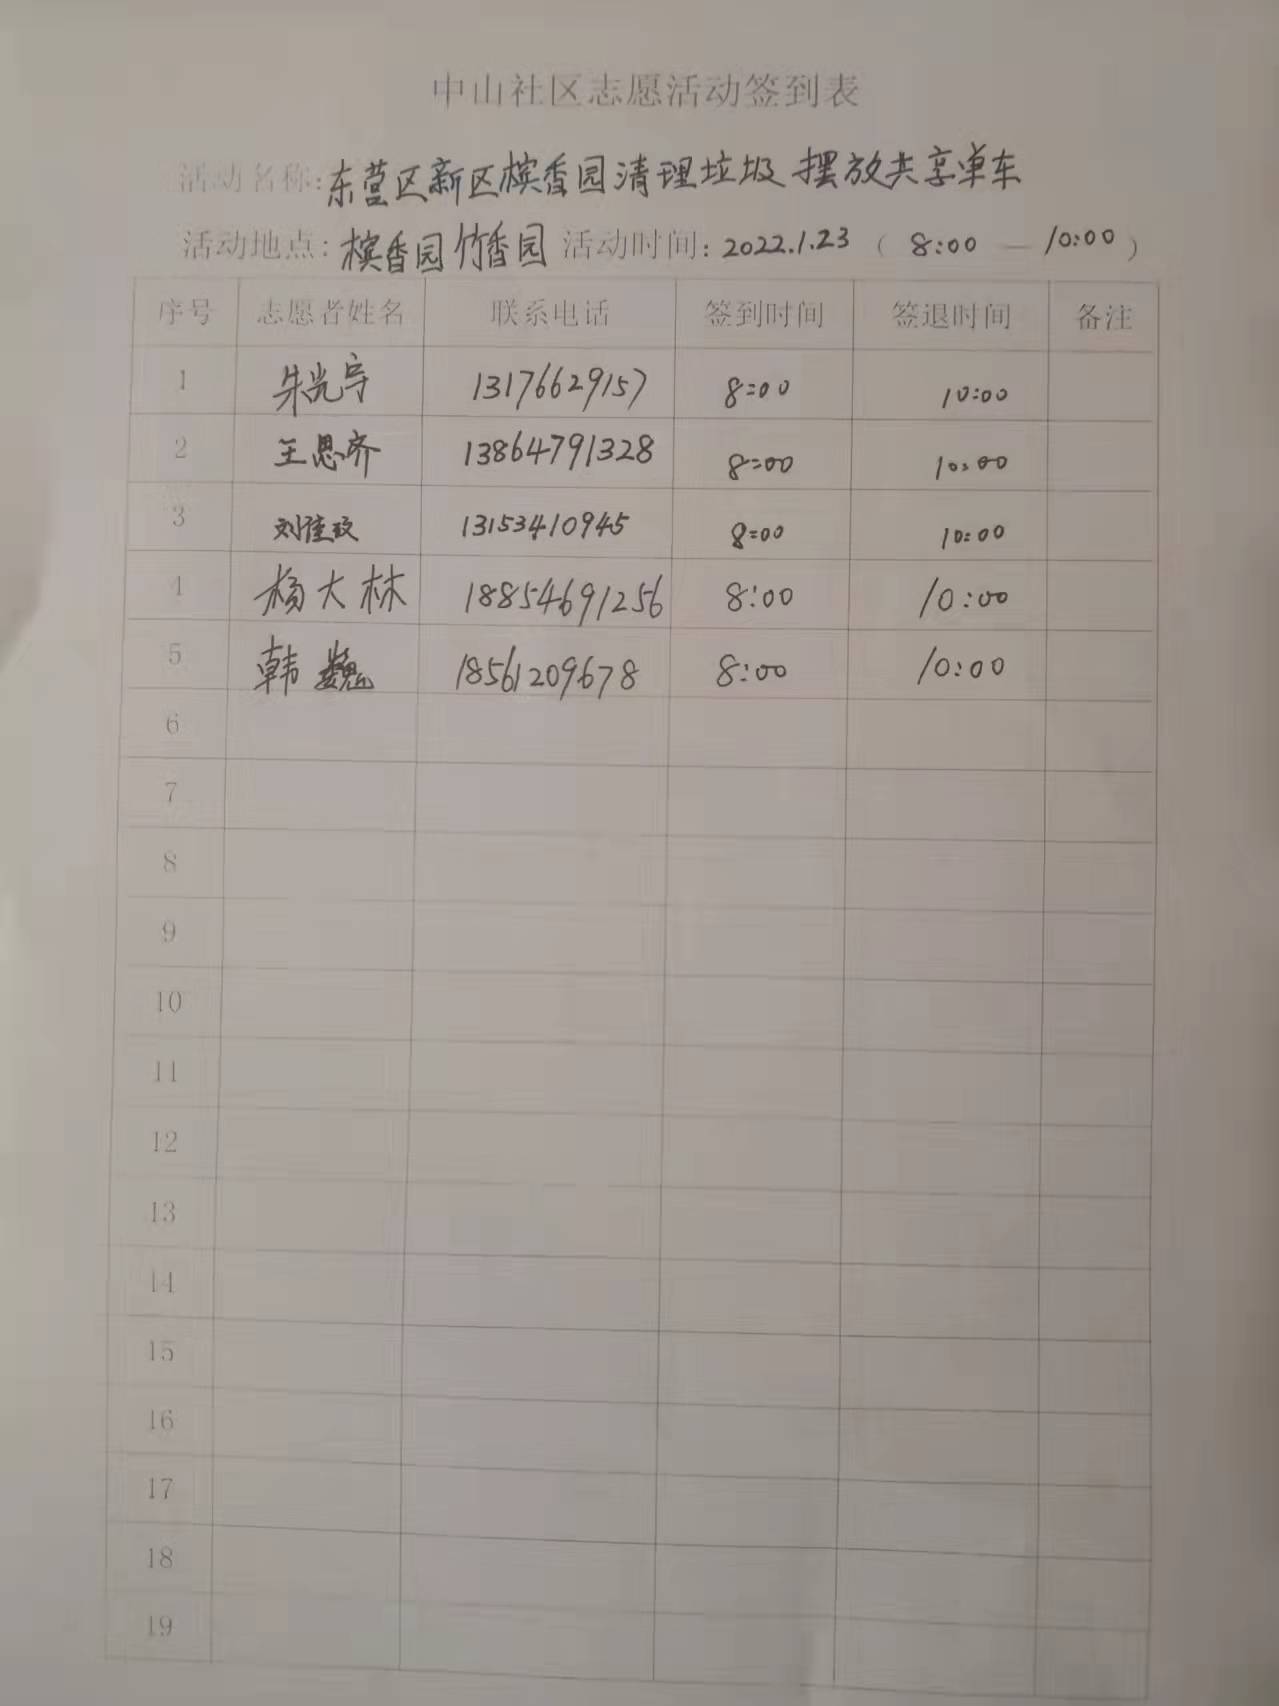 中山社区志愿活动签到表
活动名称:东营区新区槟香园清理垃圾 摆放共享单车
活动地点:槟香园竹香园 活动时间:2022.1.23 ( 8:00 — 10:00 )
序号 志愿者姓名 联系电话 签到时间 签退时间 备注
1 朱光宇 13176629157 8:00 10:00
2 王思齐 13864791328 8:00 10:00
3 刘佳玟 13153410945 8:00 10:00
4 杨大林 18854691256 8:00 10:00
5 韩巍 18561209678 8:00 10:00
6
7
8
9
10
11
12
13
14
15
16
17
18
19